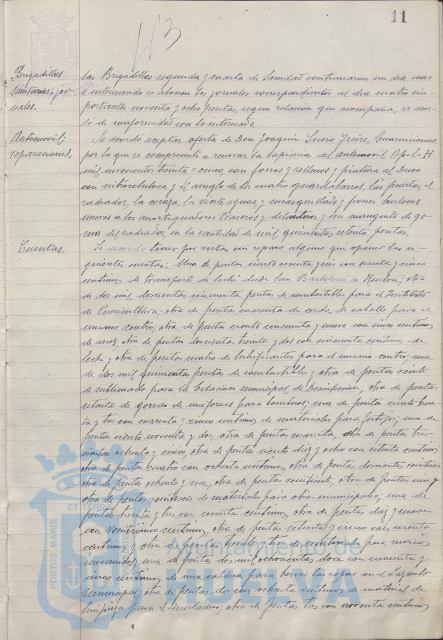 11
Brigadillas
sanitarias, jor-
nales.
las Brigadillas segunda y cuarta de Sanidad continuaron un dia mas
e interesando se abonen los jornales correspondientes al dia cuatro im-
portantes noventa y ocho pesetas segun relacion que acompaña, se acor-
dó de conformidad con lo interesado.
Automovil;
reparaciones.
Se acordó aceptar oferta de Don Joaquin Suero Guarnicionero
por la que se compromete a renovar la tapiceria del automovil Opel-H
mil novecientos treinta y cinco, con forros y rellenos y pintura al Duco
con nitrocelulosa y el arreglo de los cuatro guardabarros, las puertas, el
radiador, la coraza, los vierte aguas y enmasquillado y poner
nuevos a los amortiguadores traseros y delanteros y un manguito de go-
ma del radiador, en la cantidad de mil quinientas setenta pesetas.
Cuentas.
Se acordó tener por vistas sin reparo alguno que oponer las si-
guientes cuentas: Una de pesetas ciento
centimos de transporte de leche desde San Bartolome a Huelva; otra
de dos mil doscientas cincuenta pesetas de combustibles para el Instituto
de Puericultura; otra de pesetas cuarenta de cerdo, de caballo para el
mismo centro; otra de pesetas ciento cincuenta y nueve con cinco centimos
de aros; otra de pesetas doscientas treinta y dos con cincuenta centimos, de
leche y otra de pesetas cuatro de lubrificantes para el mismo centro; una
de dos mil quinientas pesetas de combustible y otra de pesetas veinte
de sublimado para la Estacion municipal de Desinfeccion, otra de pesetas
setenta de gorras de uniformes para bomberos; una de pesetas ciento trein-
ta y tres con cuarenta y cinco centimos de materiales para festejos; una de
pesetas ciento noventa y dos, otra de pesetas cuarenta, otra de pesetas tres-
cientas ochenta y cinco, otra de pesetas ciento diez y ocho con setenta centimos,
otra de pesetas cuatro con ochenta centimos, otra de pesetas doscientas
otra de pesetas ochenta y una, otra de pesetas
otra de pesetas de materiales para obras municipales; una de
pesetas treinta y tres con noventa centimos, otra de pesetas diez y nueve
con centimos, otra de pesetas setenta y cinco con
centimos y otra de pesetas de materiales para
una de pesetas dos mil ochocientas doce con cuarenta y
cinco centimos de una caldera para hervir las ropas en el Lazareto
Municipal, otra de pesetas dos con ochenta centimos de material de
limpieza para el otra de pesetas dos con noventa centimos
Ayuntamiento de
HUELVA
PORTUS MARIS